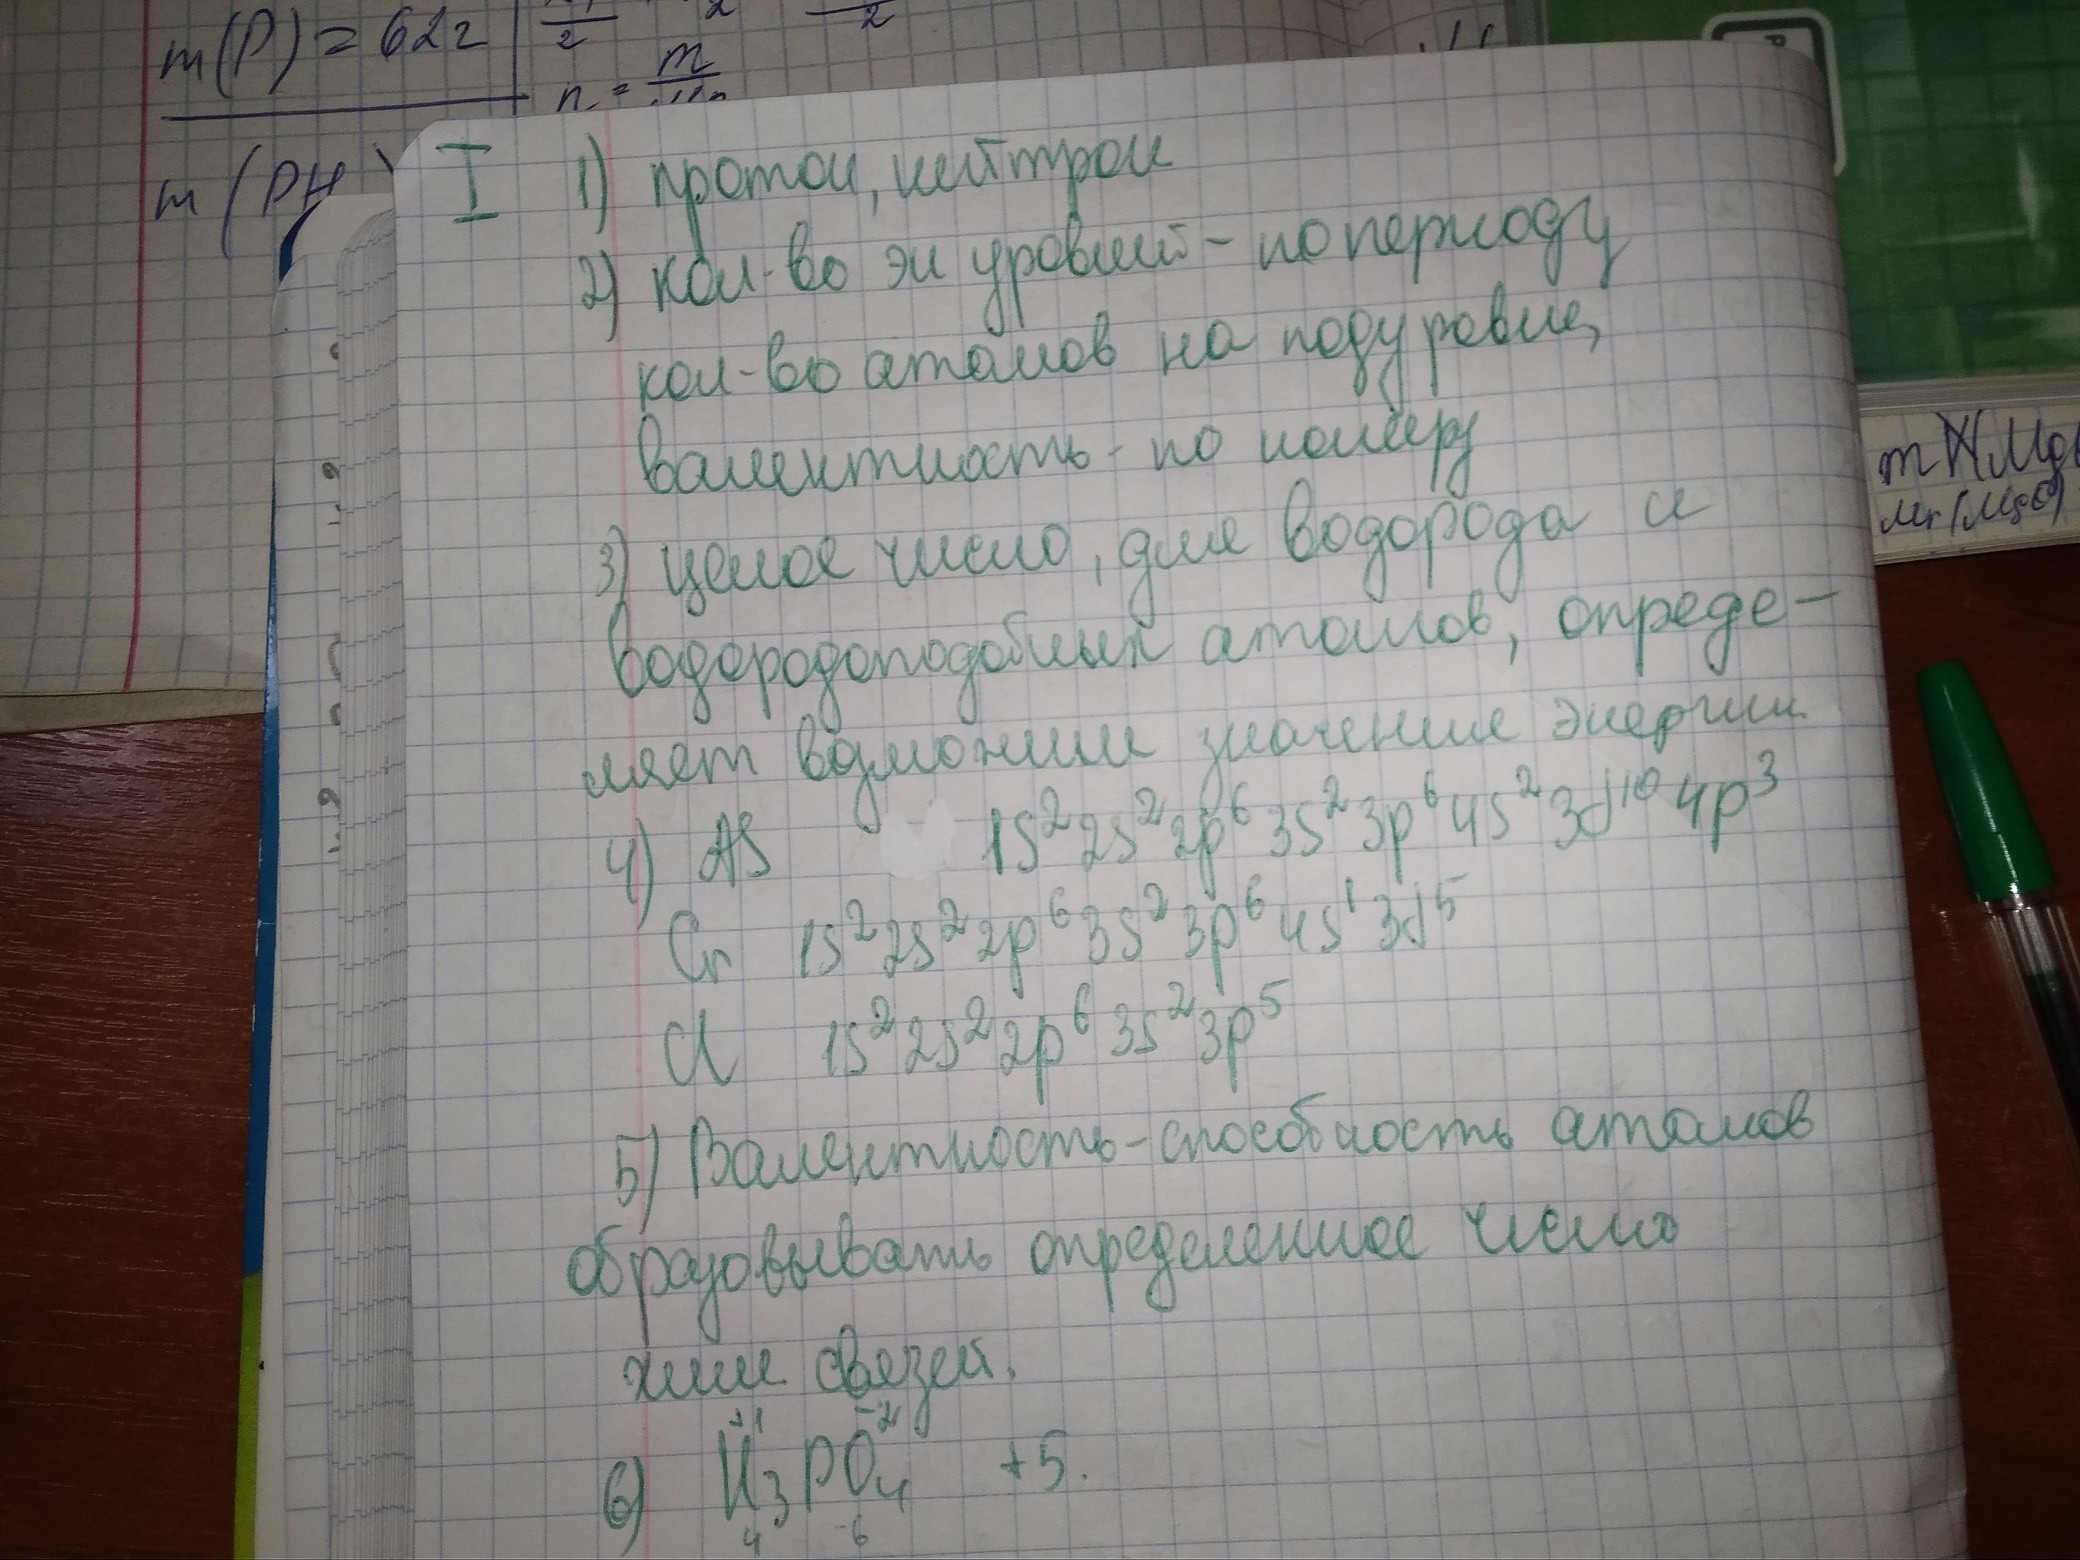 m(P) = 62г
2
2
2
n = m
m (PH
I 1) протон, нейтрон
2) кол-во эн уровней - по периоду
кол-во атомов на подуровне,
валентность - по номеру
3) целое число, для водорода и
водородоподобных атомов, опреде-
ляет возможные значение энергии
4) As 1s²2s²2p⁶3s²3p⁶4s²3d¹⁰4p³
Cr 1s²2s²2p⁶3s²3p⁶4s¹3d⁵
Cl 1s²2s²2p⁶3s²3p⁵
5) Валентность - способность атомов
образовывать определенное число
хим связей.
+1 -2
6) H₃PO₄ +5.
4 -6
Mr(MgO)